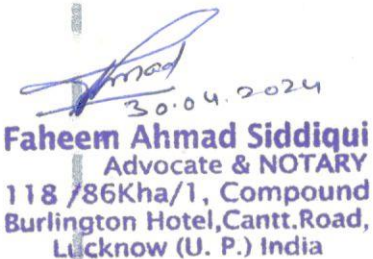 Ahmad
30.04.2024
Faheem Ahmad Siddiqui
Advocate & NOTARY
118/86Kha/1, Compound
Burlington Hotel,Cantt.Road,
Lucknow (U. P.) India